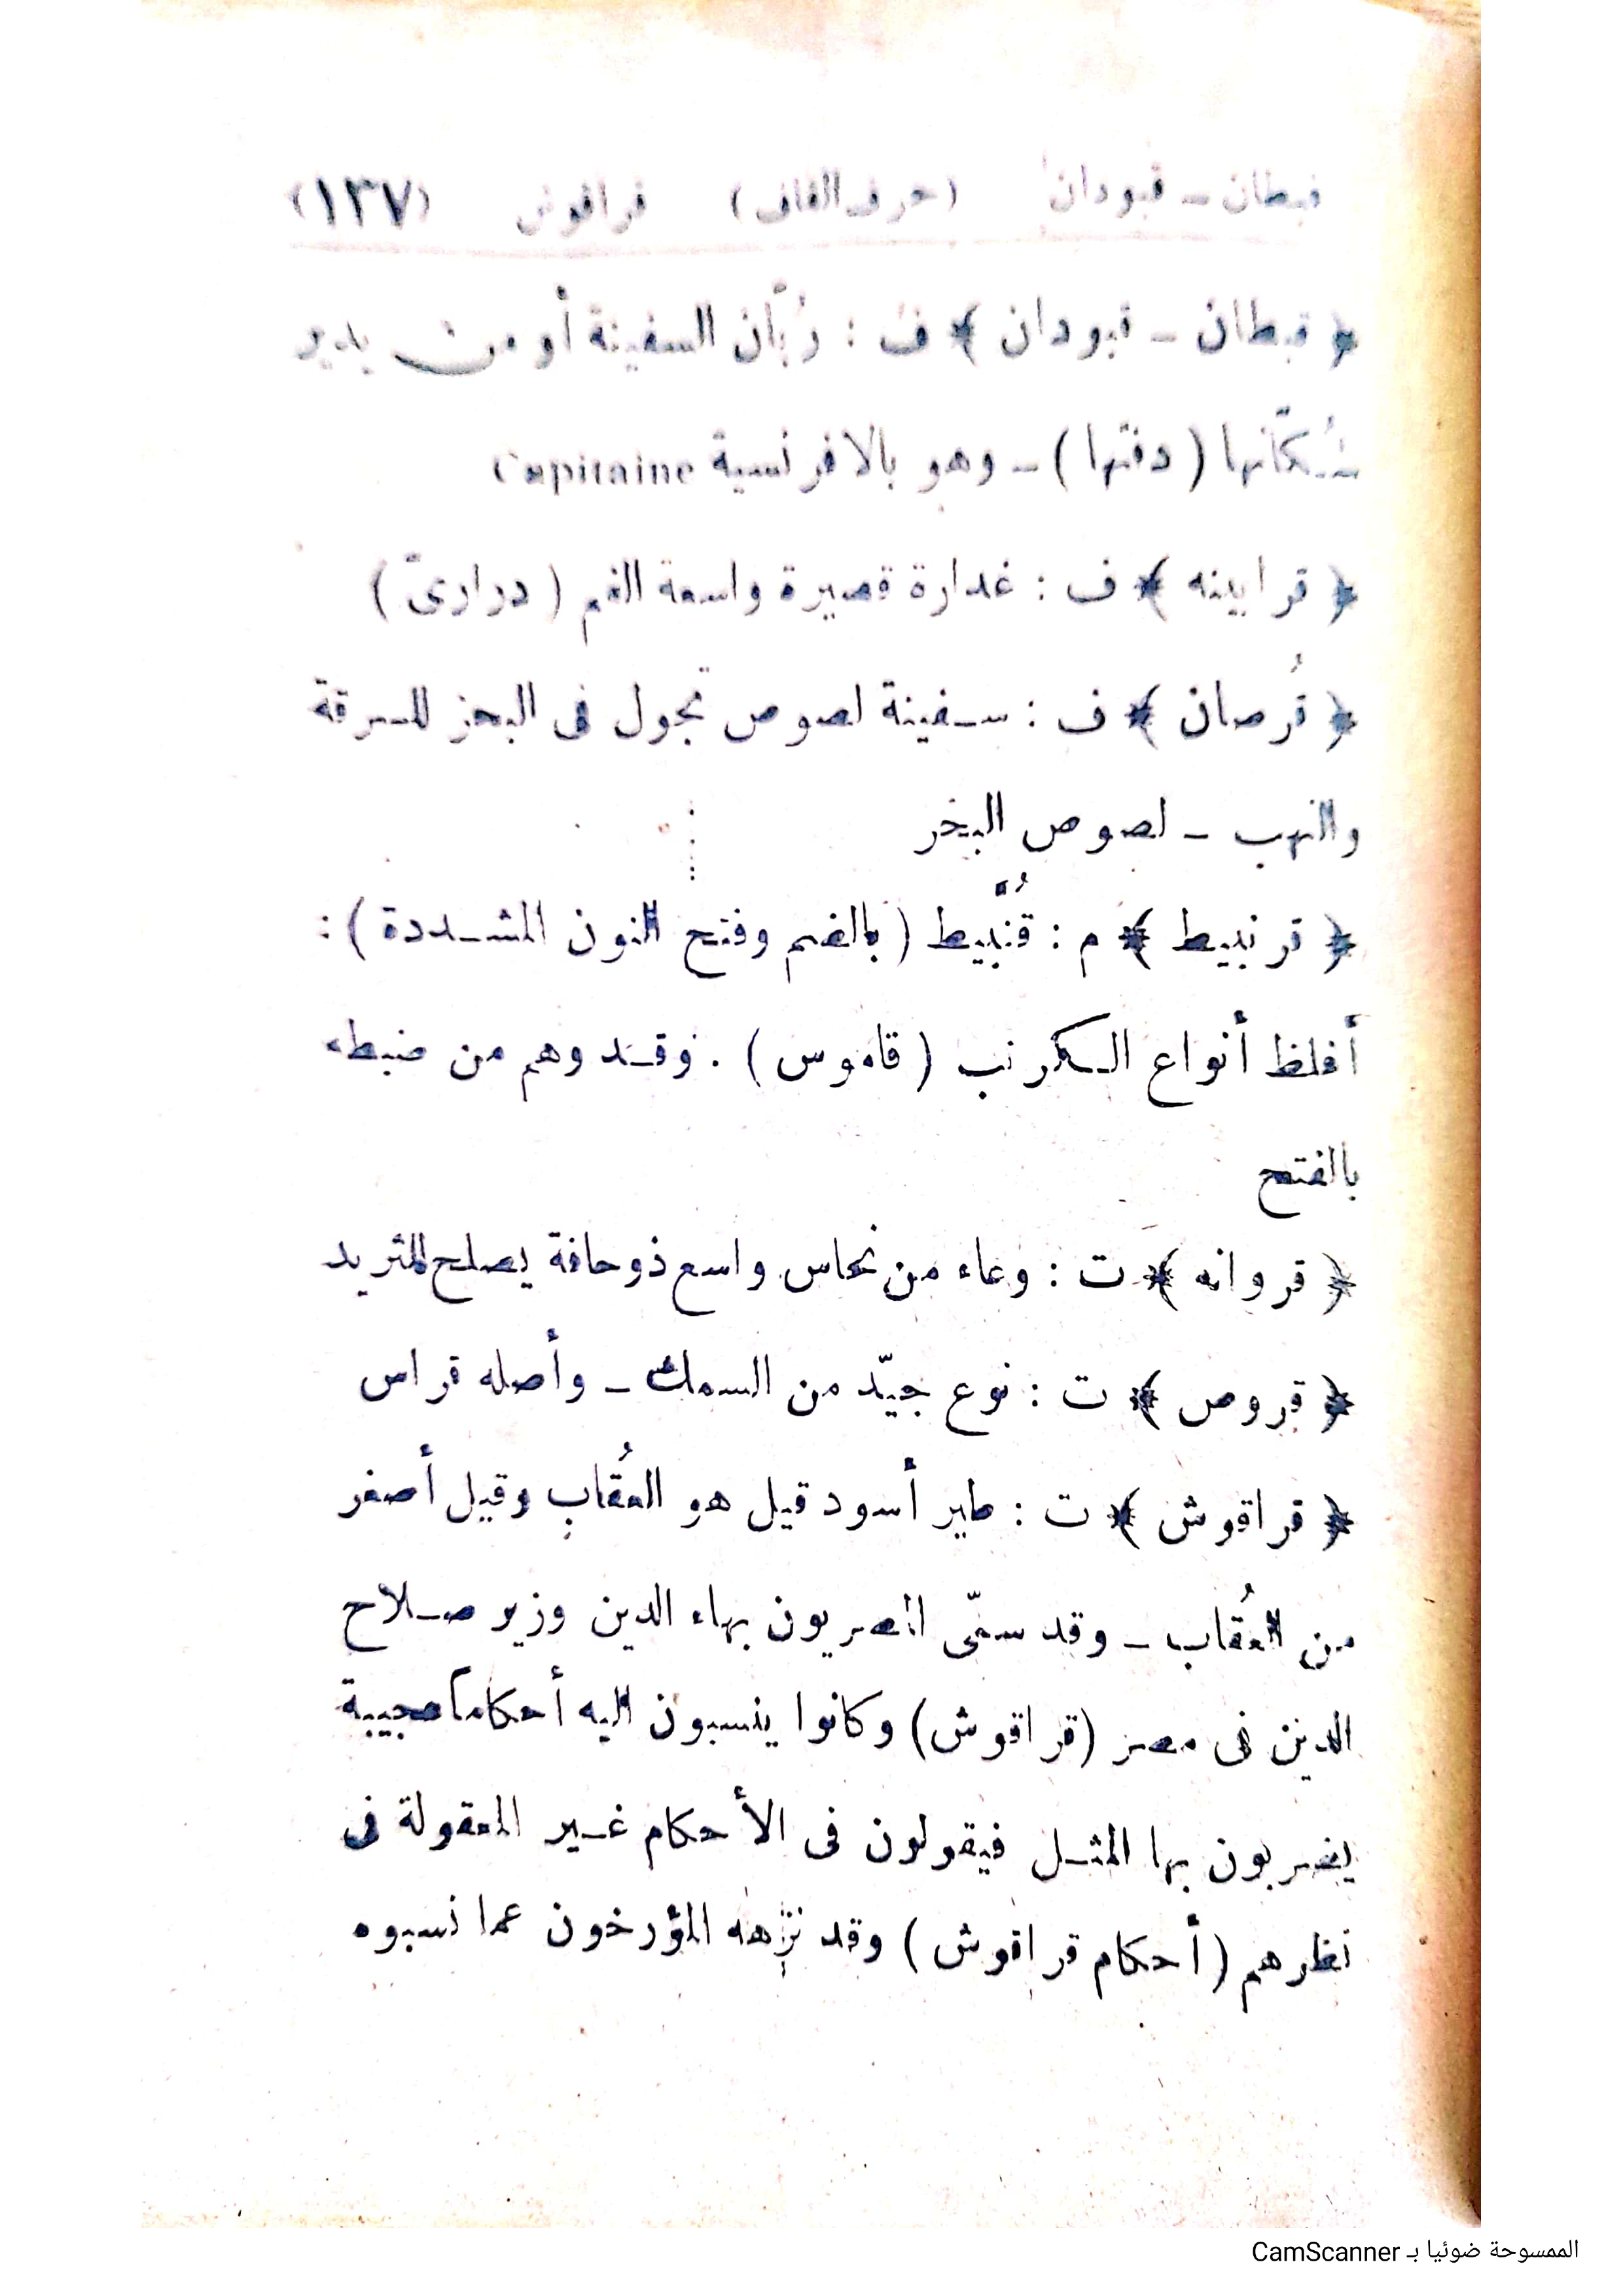 قبطان - قبودان (حرف القاف) قراقوش (١٣٧)
﴿ قبطان - قبودان ﴾ ف : رُبَّان السفينة أو من يدير
سُكّانها ( دفتها ) - وهو بالافرنسية Capitaine
﴿ قرابينه ﴾ ف : غدارة قصيرة واسعة الفم ( درارىّ )
﴿ قُرصان ﴾ ف : سفينة لصوص تجول فى البحر للسرقة
والنهب - لصوص البحر
﴿ قرنبيط ﴾ م : قُنَّبيط ( بالضم وفتح النون المشددة ) :
أغلظ أنواع الكرنب ( قاموس ) . وقد وهم من ضبطه
بالفتح
﴿ قروانه ﴾ ت : وعاء من نحاس واسع ذو حافة يصلح للثريد
﴿ قروص ﴾ ت : نوع جيّد من السمك - وأصله قراس
﴿ قراقوش ﴾ ت : طير أسود قيل هو العُقاب وقيل أصغر
من العُقاب - وقد سمّى المصريون بهاء الدين وزير صلاح
الدين فى مصر (قراقوش) وكانوا ينسبون اليه أحكاماً عجيبة
يضربون بها المثل فيقولون فى الأحكام غير المعقولة فى
نظرهم ( أحكام قراقوش ) وقد نزّهه المؤرخون عما نسبوه
الممسوحة ضوئيا بـ CamScanner